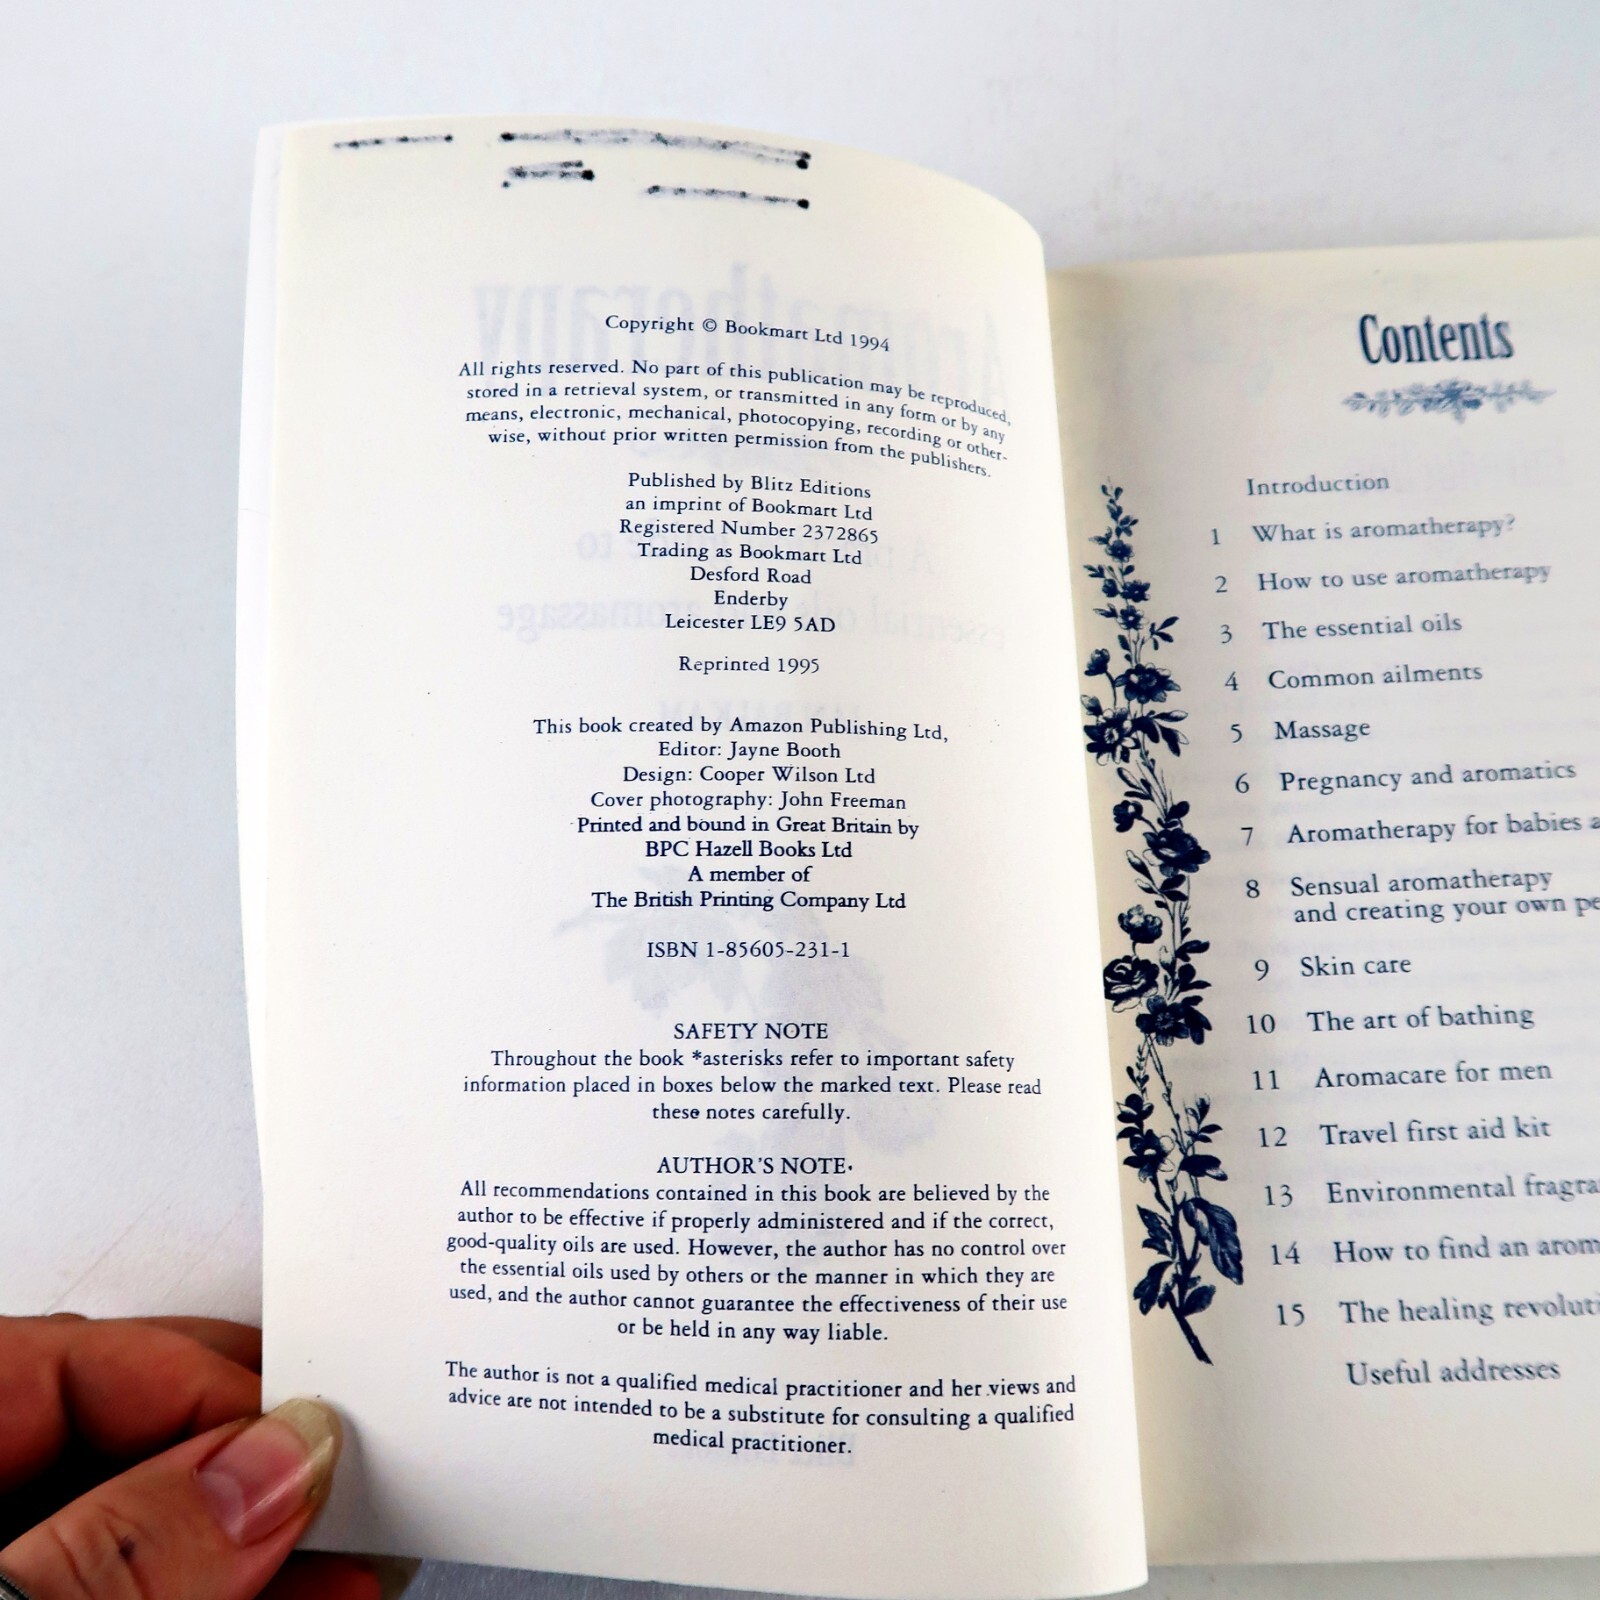 Copyright © Bookmart Ltd 1994
All rights reserved. No part of this publication may be reproduced,
stored in a retrieval system, or transmitted in any form or by any
means, electronic, mechanical, photocopying, recording or other-
wise, without prior written permission from the publishers.
Published by Blitz Editions
an imprint of Bookmart Ltd
Registered Number 2372865
Trading as Bookmart Ltd
Desford Road
Enderby
Leicester LE9 5AD
Reprinted 1995
This book created by Amazon Publishing Ltd,
Editor: Jayne Booth
Design: Cooper Wilson Ltd
Cover photography: John Freeman
Printed and bound in Great Britain by
BPC Hazell Books Ltd
A member of
The British Printing Company Ltd
ISBN 1-85605-231-1
SAFETY NOTE
Throughout the book *asterisks refer to important safety
information placed in boxes below the marked text. Please read
these notes carefully.
AUTHOR'S NOTE
All recommendations contained in this book are believed by the
author to be effective if properly administered and if the correct,
good-quality oils are used. However, the author has no control over
the essential oils used by others or the manner in which they are
used, and the author cannot guarantee the effectiveness of their use
or be held in any way liable.
The author is not a qualified medical practitioner and her views and
advice are not intended to be a substitute for consulting a qualified
medical practitioner.
Contents
Introduction
1 What is aromatherapy?
2 How to use aromatherapy
3 The essential oils
4 Common ailments
5 Massage
6 Pregnancy and aromatics
7 Aromatherapy for babies a
8 Sensual aromatherapy
and creating your own pe
9 Skin care
10 The art of bathing
11 Aromacare for men
12 Travel first aid kit
13 Environmental fragra
14 How to find an arom
15 The healing revoluti
Useful addresses